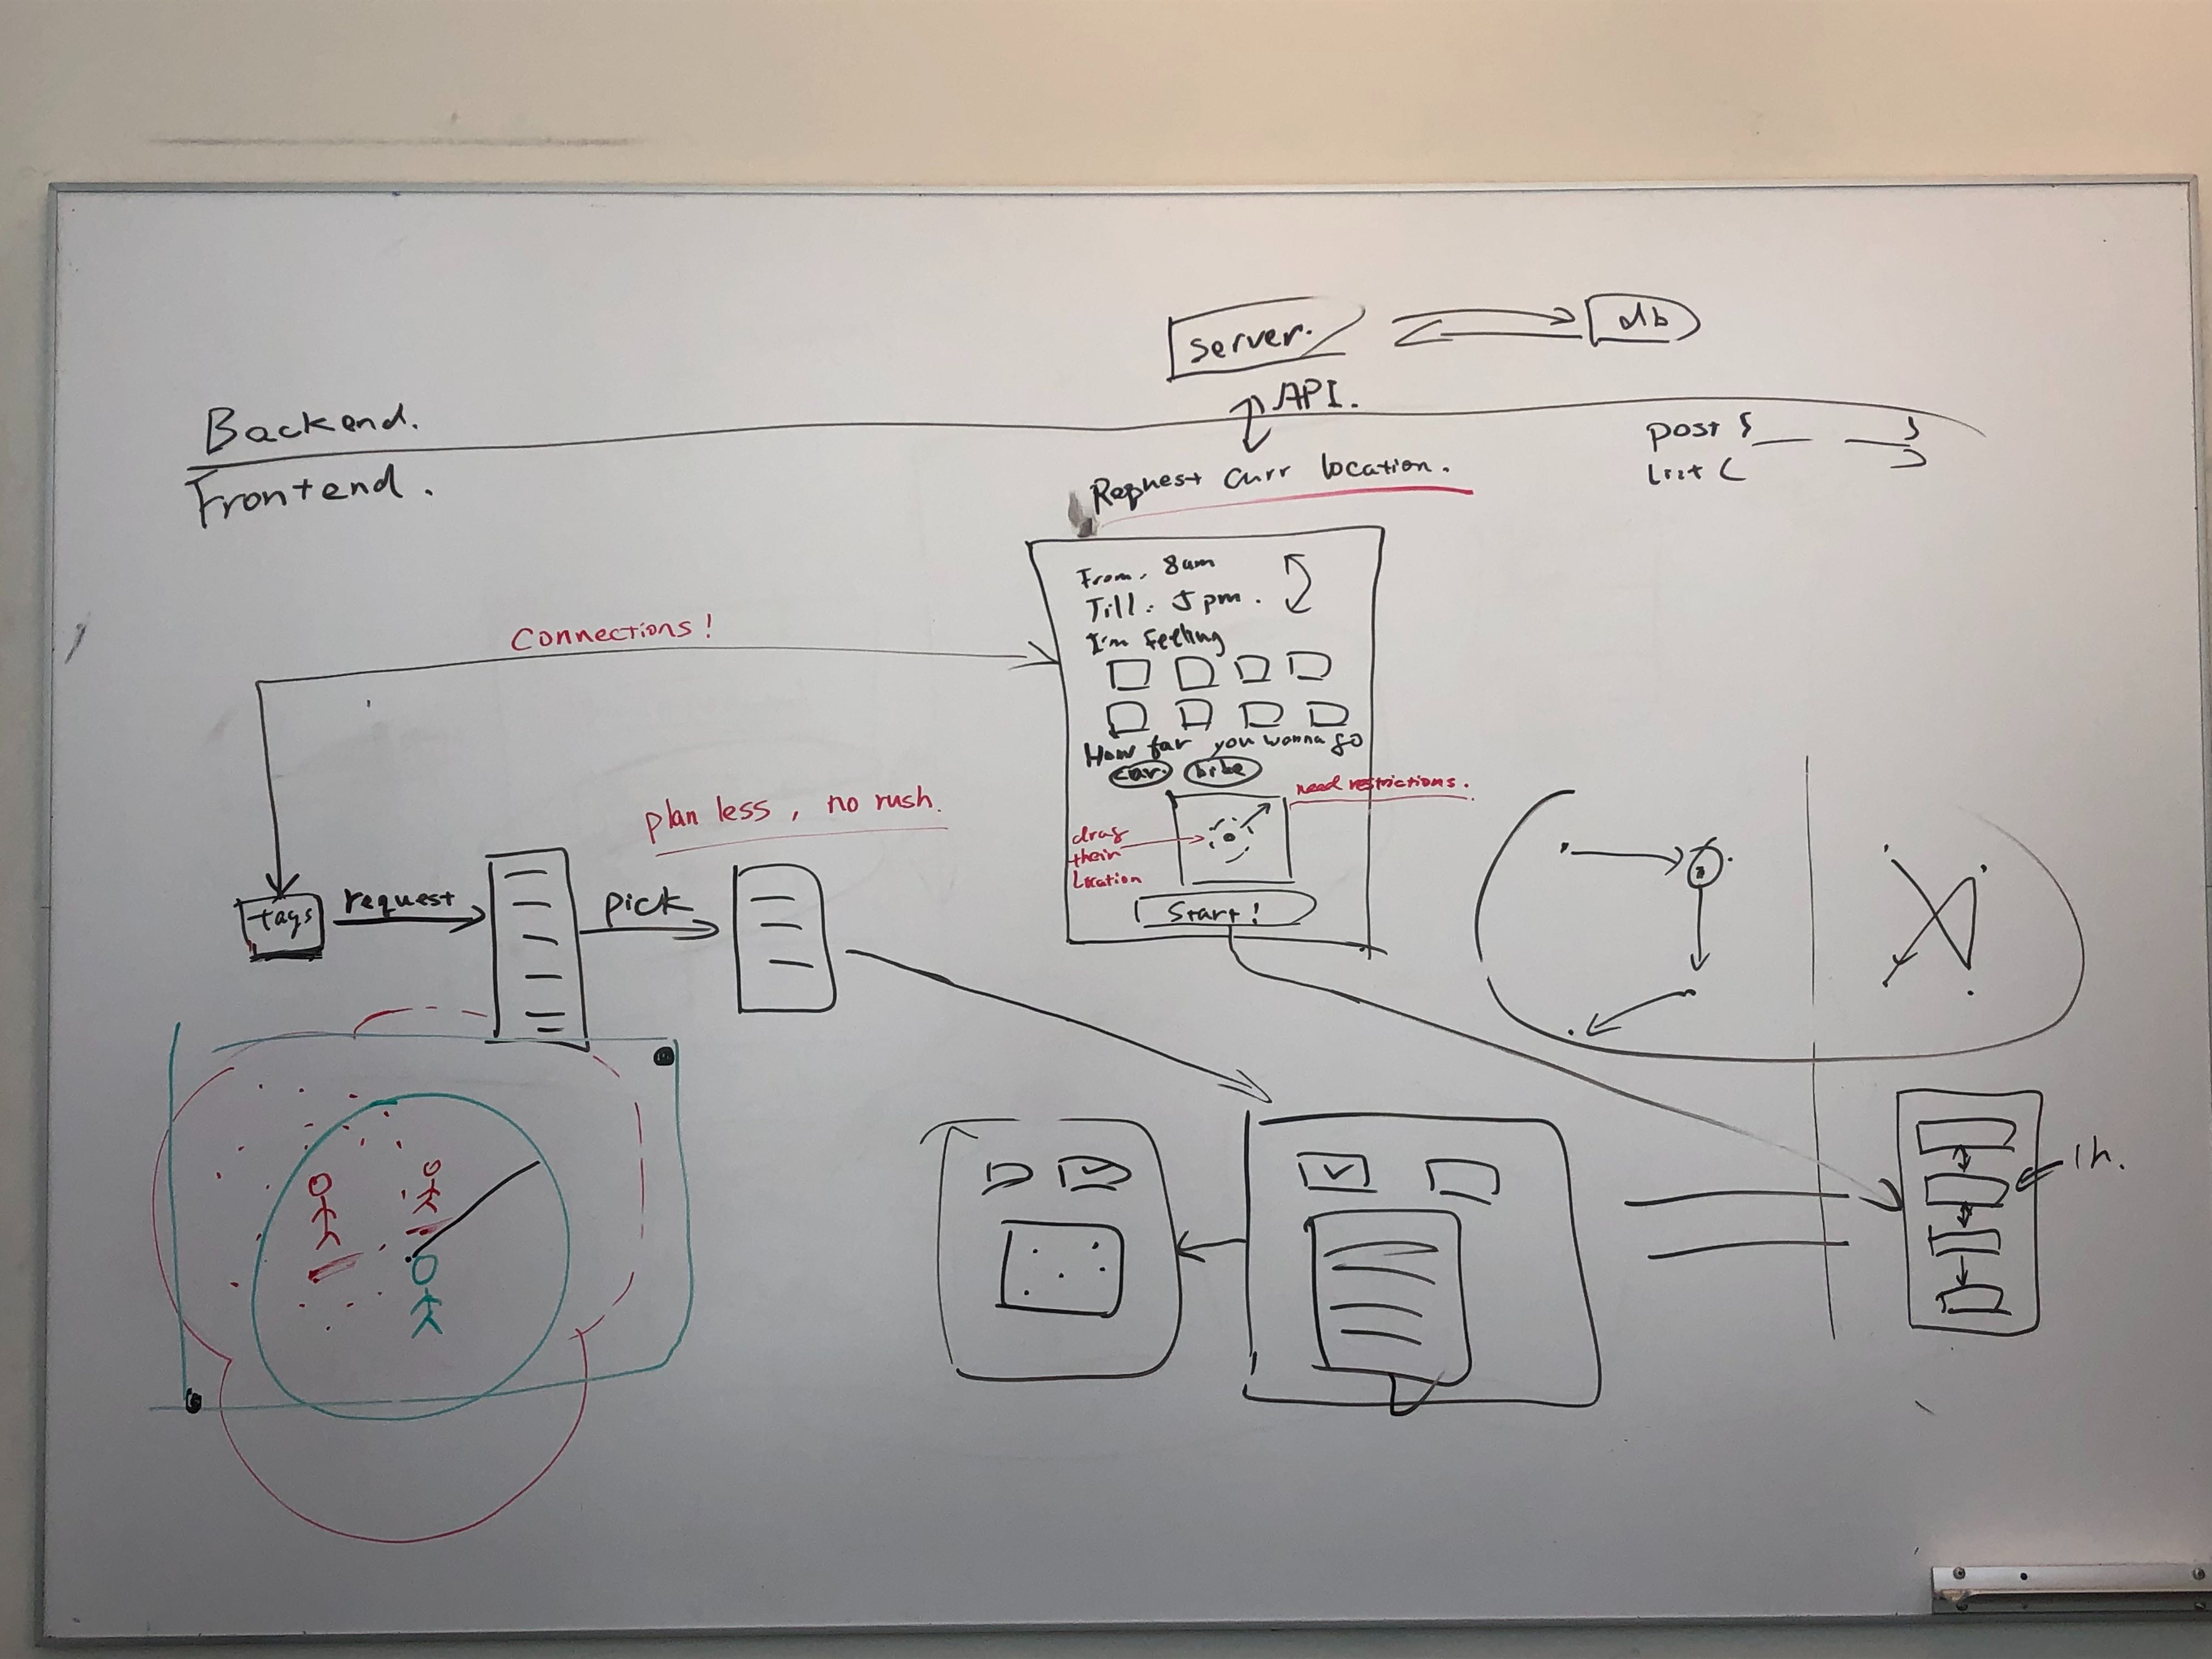 server.
db
API.
Backend.
Frontend.
post { }
list ( )
Request curr location.
From. 8am
Till. 5pm.
I'm feeling
How far you wanna go
car. bike
need restrictions.
drag
their
Location
Start!
Connections!
plan less, no rush.
tags
request
pick
1h.